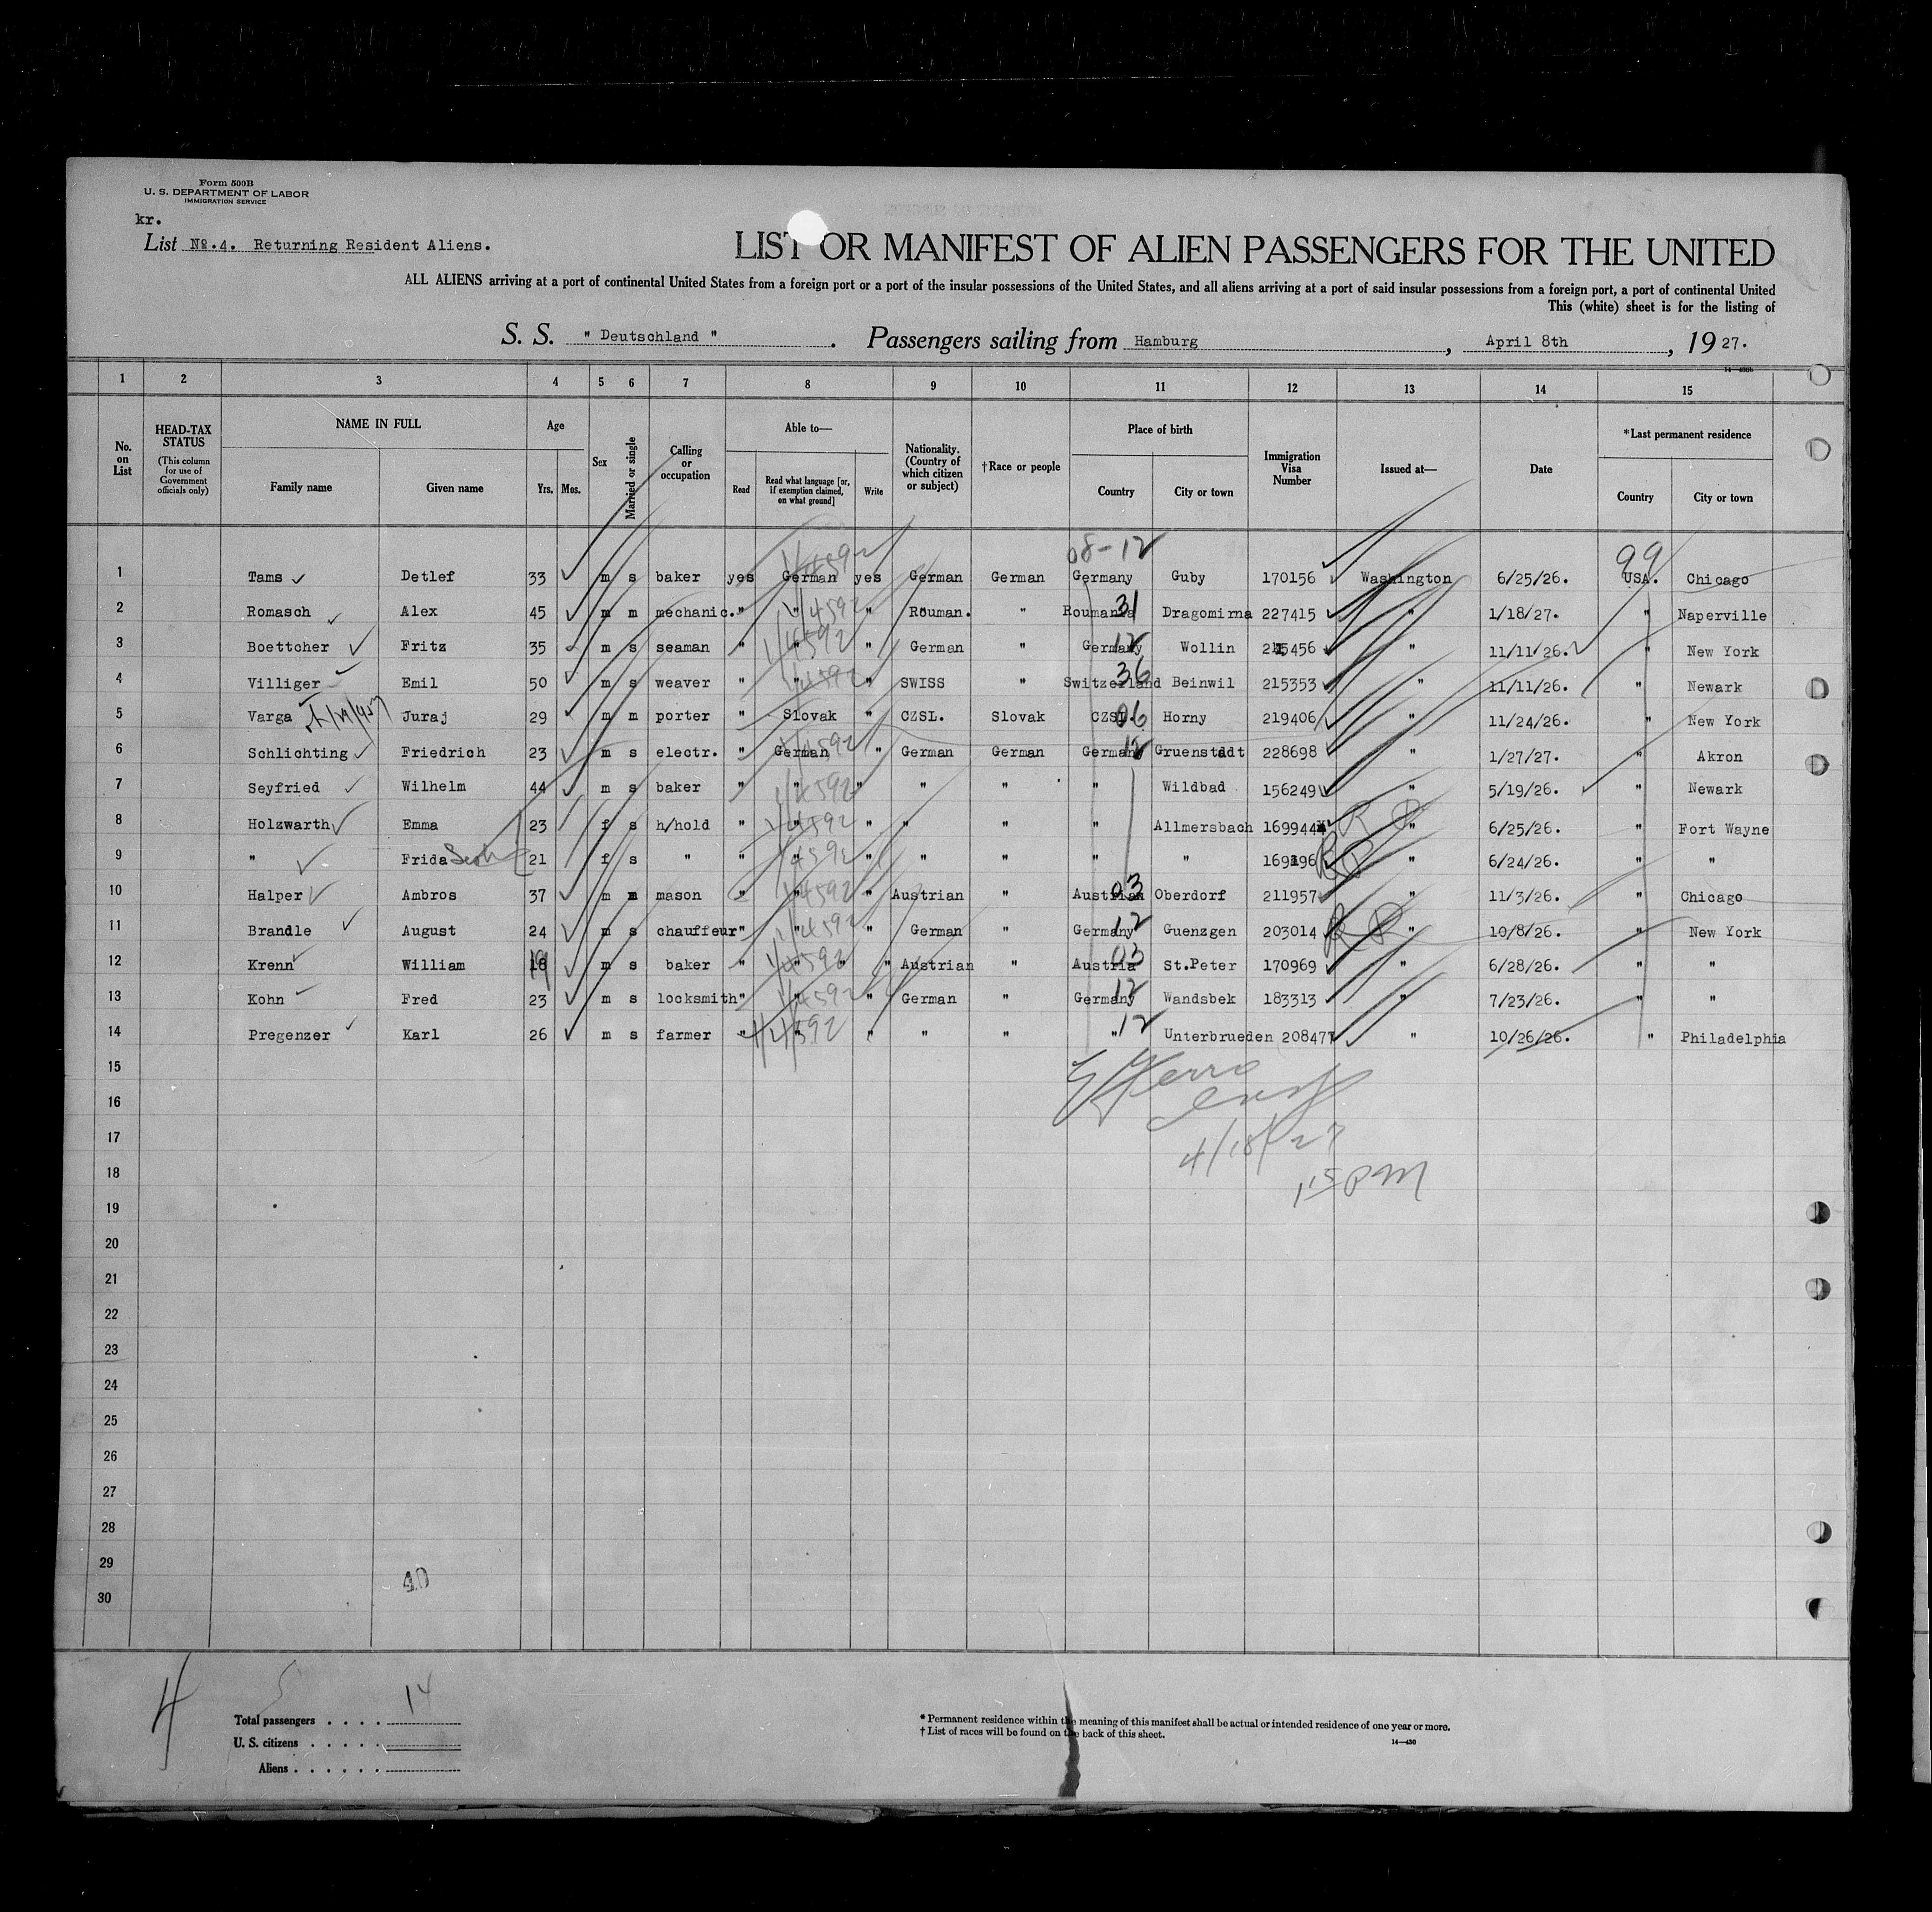 Form 500B
U. S. DEPARTMENT OF LABOR
IMMIGRATION SERVICE
kr.
List No.4. Returning Resident Aliens.
LIST OR MANIFEST OF ALIEN PASSENGERS FOR THE UNITED
ALL ALIENS arriving at a port of continental United States from a foreign port or a port of the insular possessions of the United States, and all aliens arriving at a port of said insular possessions from a foreign port, a port of continental United
This (white) sheet is for the listing of
S. S. " Deutschland " . Passengers sailing from Hamburg , April 8th , 19 27.
14—430b
1 2 3 4 5 6 7 8 9 10 11 12 13 14 15
No. on List HEAD-TAX STATUS (This column for use of Government officials only) NAME IN FULL Family name Given name Age Yrs. Mos. Sex Married or single Calling or occupation Able to— Read Read what language [or, if exemption claimed, on what ground] Write Nationality. (Country of which citizen or subject) †Race or people Place of birth Country City or town Immigration Visa Number Issued at— Date *Last permanent residence Country City or town
08-12 99
1 Tams Detlef 33 m s baker yes German yes German German Germany Guby 170156 Washington 6/25/26. USA. Chicago
2 Romasch Alex 45 m m mechanic. " " " Rouman. " Roumania 31 Dragomirna 227415 " 1/18/27. " Naperville
3 Boettcher Fritz 35 m s seaman " " " German " Germany 12 Wollin 215456 " 11/11/26. " New York
4 Villiger Emil 50 m s weaver " " " SWISS " Switzerland 36 Beinwil 215353 " 11/11/26. " Newark
5 Varga Juraj 29 m m porter " Slovak " CZSL. Slovak CZSL. 06 Horny 219406 " 11/24/26. " New York
6 Schlichting Friedrich 23 m s electr. " German " German German Germany 12 Gruenstadt 228698 " 1/27/27. " Akron
7 Seyfried Wilhelm 44 m s baker " " " " " " Wildbad 156249 " 5/19/26. " Newark
8 Holzwarth Emma 23 f s h/hold " " " " " " Allmersbach 169944 " 6/25/26. " Fort Wayne
9 " Frida 21 f s " " " " " " " " 169196 " 6/24/26. " "
10 Halper Ambros 37 m m mason " " " Austrian " Austrian 03 Oberdorf 211957 " 11/3/26. " Chicago
11 Brandle August 24 m s chauffeur " " " German " Germany 12 Guenzgen 203014 " 10/8/26. " New York
12 Krenn William 19 m s baker " " " Austrian " Austria 03 St.Peter 170969 " 6/28/26. " "
13 Kohn Fred 23 m s locksmith " " " German " Germany 12 Wandsbek 183313 " 7/23/26. " "
14 Pregenzer Karl 26 m s farmer " 1/4592 " " " " 12 Unterbrueden 208477 " 10/26/26. " Philadelphia
15
16
17
4/18/27
18
1 15 PM
19
20
21
22
23
24
25
26
27
28
29
40
30
4
14
Total passengers . . . .
U. S. citizens . . . . .
Aliens . . . . . .
* Permanent residence within the meaning of this manifest shall be actual or intended residence of one year or more.
† List of races will be found on the back of this sheet.
14—430